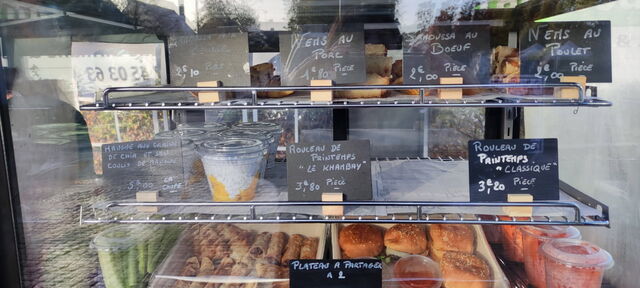 2€10
NEMS AU
PORC
1€80 PIÈCE
SAMOUSSA AU
BOEUF
2€00 PIÈCE
NEMS AU
POULET
2€00 PIÈCE
03 63
MOUSSE AUX GRAINES
DE CHIA ET SON
COULIS DE
5€00 LA COUPE
ROULEAU DE
PRINTEMPS
"LE KHANBAY"
3€80 PIÈCE
ROULEAU DE
PRINTEMPS
"CLASSIQUE"
3€20 PIÈCE
PLATEAU A PARTAGER
A 2